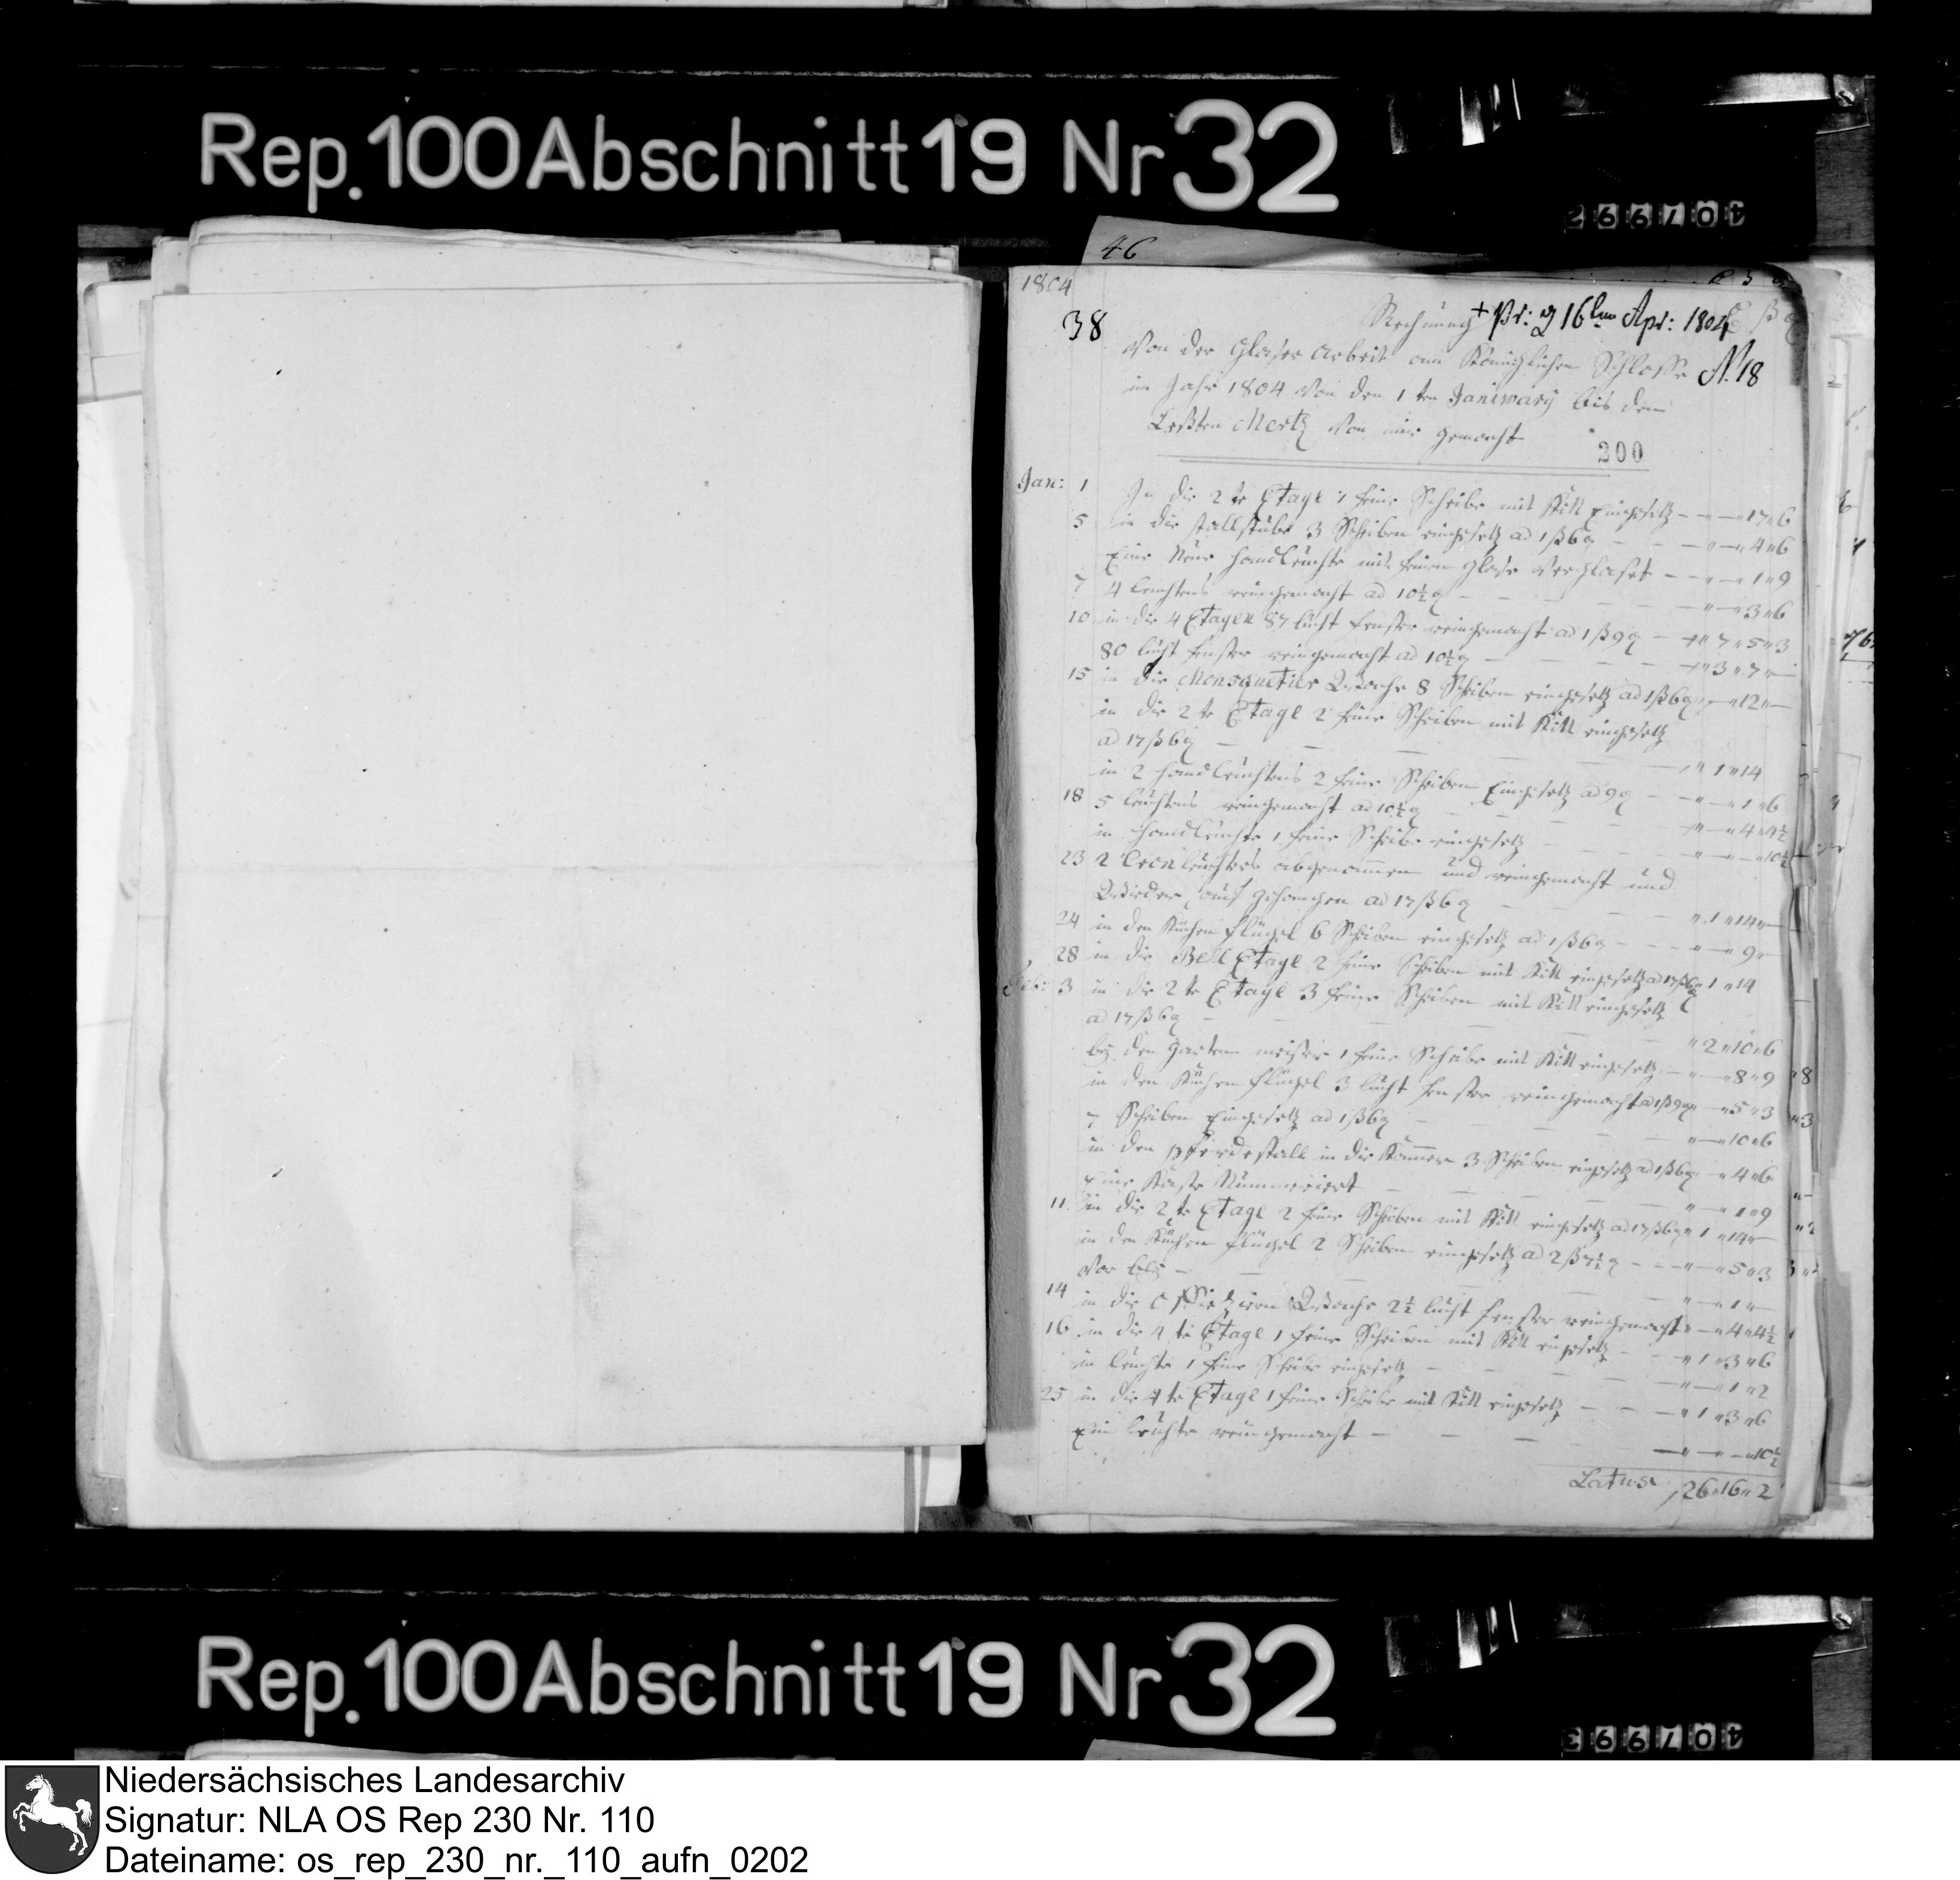 Rep. 100 Abschnitt 19 Nr 32
40/992
46
1804
38
Rechnung + Pr: d 16ten Apr: 1804
Von der Glaser Arbeit am Königlichen Schlosse N. 18
im Jahr 1804 Von den 1 ten Januwary bis den
Leßten Mertz Von mir gemacht
200
Jan: 1 In die 2 te Etage 1 feine Scheibe mit Kitt Eingesetz - „ — „ 17 „ 6
5 in die stallstube 3 Scheiben eingesetz ad 1 ß 6 ₰ - — „ 4 „ 6
Eine Neue handleuchte mit feinen Glase verglaset - „ — „ 1 „ 9
7 4 leuchtens reingemacht ad 10½ ₰ - „ — „ 3 „ 6
10 in die 4 Etagen 87 lucht fenster reingemacht ad 1 ß 9 ₰ - „ 7 „ 5 „ 3
80 lucht fenster reingemacht ad 10½ ₰ - „ 3 „ 7 „ —
15 in die Monsquetier Wache 8 Scheiben eingesetz ad 1 ß 6 ₰ „ — „ 12 „ —
in die 2 te Etage 2 feine Scheiben mit Kitt eingesetz
ad 17 ß 6 ₰ — — „ 1 „ 14
in 2 handleuchtens 2 feine Scheiben Eingesetz ad 9 ₰ - „ — „ 1 „ 6
18 5 leuchtens reingemacht ad 10½ ₰ - „ — „ 4 „ 4½
in handleuchte 1 feine Scheibe eingesetz - „ — „ — „ 10½
23 2 Cronleuchters abgenommen und reingemacht und
Wieder auf gehangen ad 17 ß 6 ₰ - „ 1 „ 14 „ —
24 in den Küchen flügel 6 Scheiben eingesetz ad 1 ß 6 ₰ - - - „ — „ 9 „ —
28 in die Bell Etage 2 feine Scheiben mit Kitt eingesetz ad 17 ß 6 ₰ „ 1 „ 14
Feb: 3 in die 2 te Etage 3 feine Scheiben mit Kitt eingesetz
ad 17 ß 6 ₰ - „ 2 „ 10 „ 6
bey den Garten meister 1 feine Scheibe mit Kitt eingesetz - „ — „ 8 „ 9
in den Küchen flügel 3 lucht fenster reingemacht ad 1 ß 9 ₰ „ — „ 5 „ 3
7 Scheiben Eingesetz ad 1 ß 6 ₰ - „ — „ 10 „ 6
in den pferdestall in die Kammer 3 Scheiben eingesetz ad 1 ß 6 ₰ „ — „ 4 „ 6
Eine Nummeriert - „ — „ 1 „ 9
11 in die 2 te Etage 2 feine Scheiben mit Kitt eingesetz ad 17 ß 6 ₰ „ 1 „ 14 „ —
in den Küchen flügel 2 Scheiben eingesetz ad 2 ß 7½ ₰ - - „ — „ 5 „ 3
Vor - „ — „ 1 „ —
14 in die Wache 2½ lucht fenster reingemacht „ — „ 4 „ 4½
16 in die 4 te Etage 1 feine Scheiben mit Kitt eingesetz - „ 1 „ 3 „ 6
in leuchte 1 feine Scheibe eingesetz - „ — „ 1 „ 2
25 in die 4 te Etage 1 feine Scheibe mit Kitt eingesetz - - „ 1 „ 3 „ 6
Ein leuchte reingemacht - - — „ — „ — „ 10½
Latus 26 „ 16 „ 2
Rep. 100 Abschnitt 19 Nr 32
40/993
Niedersächsisches Landesarchiv
Signatur: NLA OS Rep 230 Nr. 110
Dateiname: os_rep_230_nr._110_aufn_0202